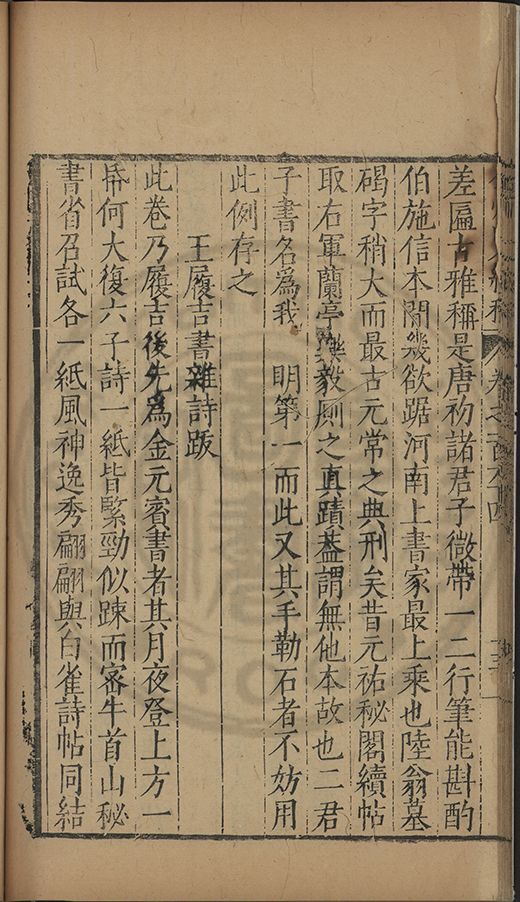 差匾古雅稱是唐初諸君子微帶一二行筆能斟酌
伯施信本閒幾欲踞河南上書家最上乘也陸翁墓
碣字稍大而最古元常之典刑矣昔元祐秘閣續帖
取右軍蘭亭樂毅則之真蹟葢謂無他本故也二君
子書名爲我 明第一而此又其手勒石者不妨用
此例存之
王履吉書雜詩跋
此卷乃履吉後先爲金元賓書者其月夜登上方一
帋何大復六子詩一紙皆緊勁似踈而密牛首山秘
書省召試各一紙風神逸秀翩翩與白雀詩帖同結